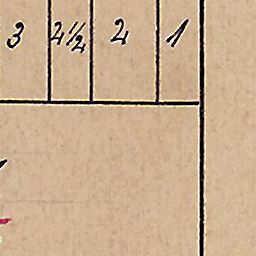 3 2½ 2 1